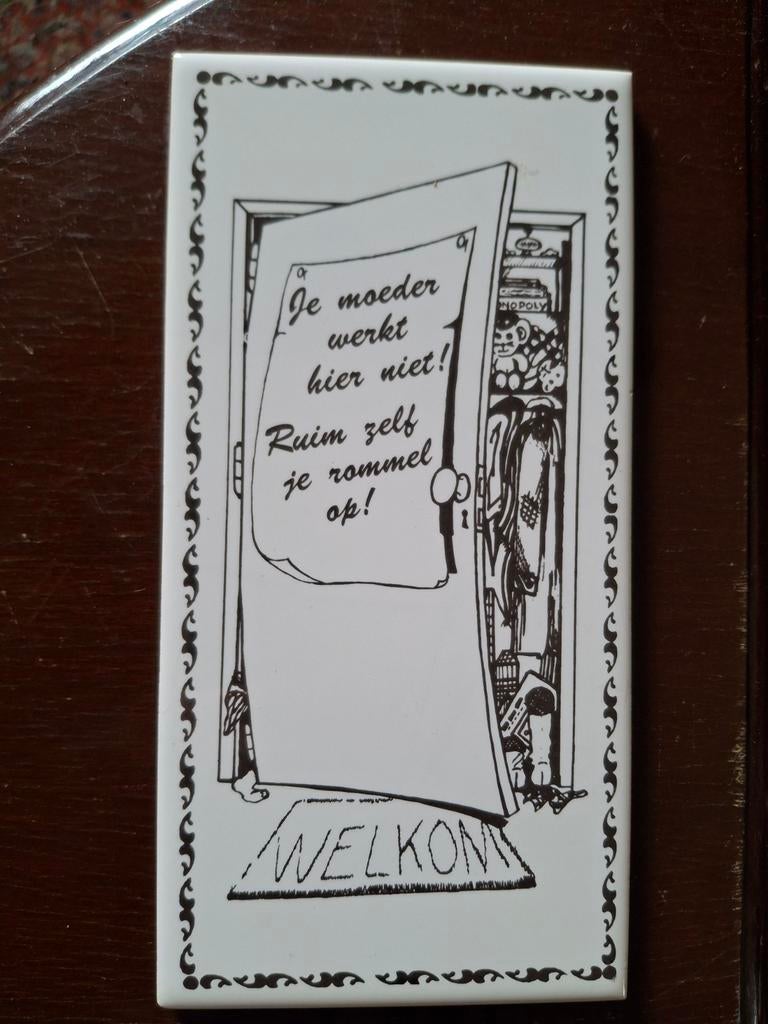 Je moeder
werkt
hier niet!
Ruim zelf
je rommel
op!
NOPOLY
WELKOM